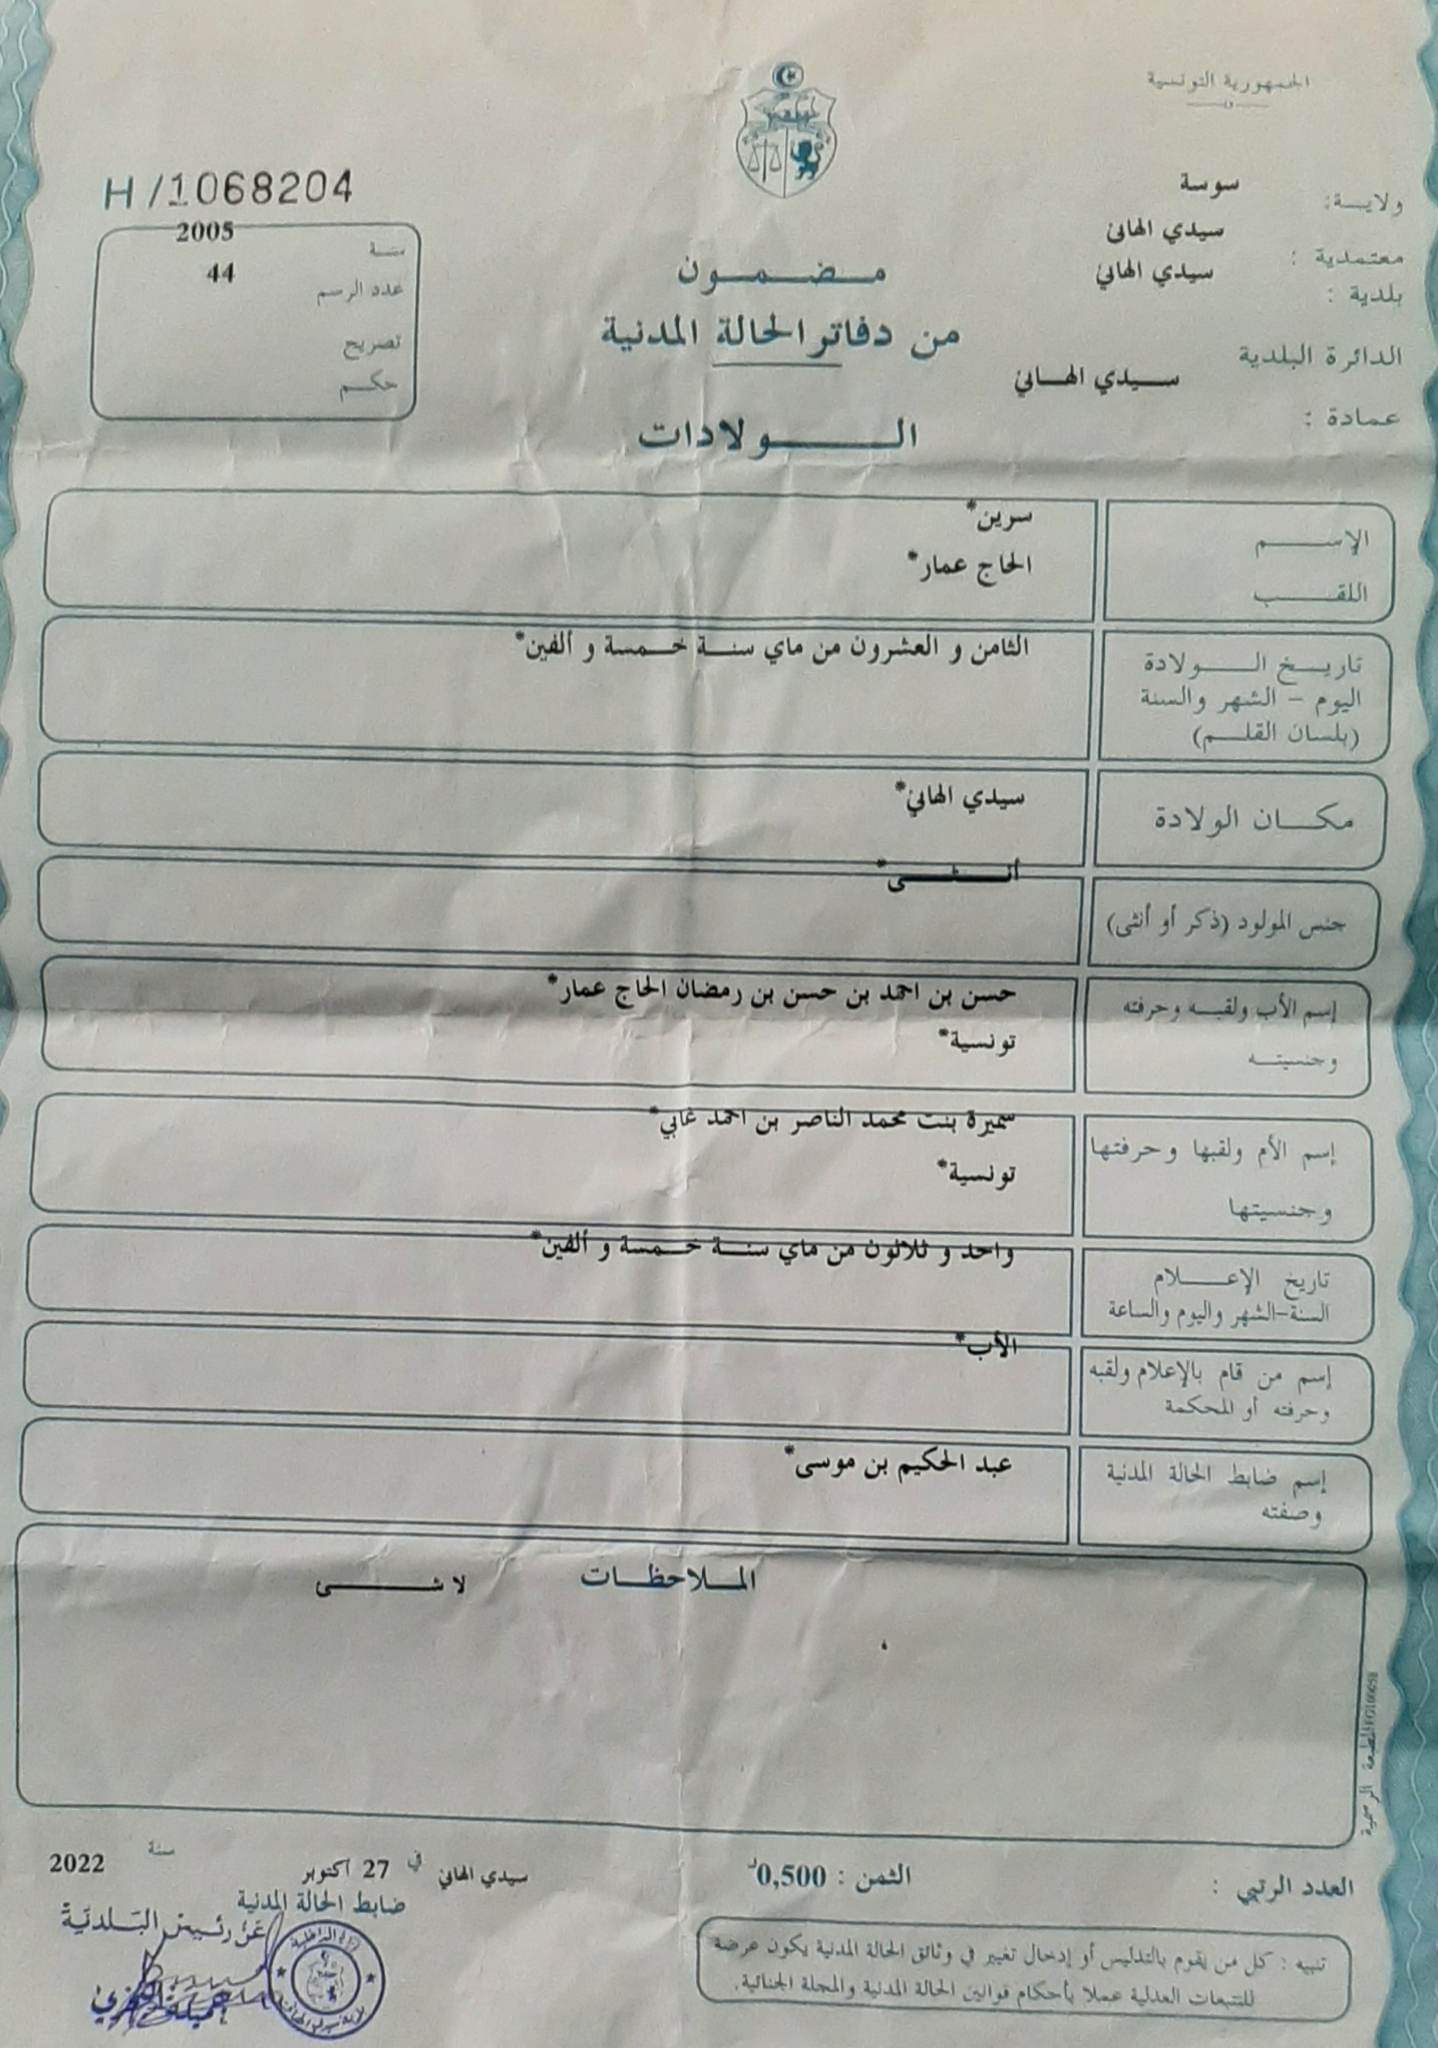 الجمهورية التونسية
ولايـــة: سوسة
معتمدية : سيدي الهاني
بلدية : سيدي الهاني
الدائرة البلدية
سـيـدي الهـاني
عمـادة :
H/1068204
سنـة 2005
عدد الرسم 44
تصريح
حكـم
مـضـمـون
من دفاتر الحالة المدنية
الـولادات
الإســـم سرين*
اللقـــب الحاج عمار*
تاريـخ الـولادة الثامن و العشرون من ماي سنـة خـمـسـة و ألفين*
اليوم – الشهر والسنة
(بلسان القلـم)
مكـــان الولادة سيدي الهاني*
جنس المولود (ذكر أو أنثى) أنـثـى*
إسم الأب ولقبـه وحرفته حسن بن احمد بن حسن بن رمضان الحاج عمار*
وجنسيتـه تونسية*
إسم الأم ولقبها وحرفتها سميرة بنت محمد الناصر بن احمد غابي*
وجنسيتها تونسية*
تاريخ الإعـــلام واحد و ثلاثون من ماي سنـة خـمـسـة و ألفين*
السنة-الشهر واليوم والساعة
إسم من قام بالإعلام ولقبه الأب*
وحرفته أو المحكمة
إسم ضابط الحالة المدنية عبد الحكيم بن موسى*
وصفته
المـلاحظـات لا شـــى
المطبعة الرسمية
العدد الرتبي :
الثمن : 0,500د
سيدي الهاني في 27 اكتوبر سنة 2022
ضابط الحالة المدنية
عن رئيس البلدية
تنبيه : كل من يقوم بالتدليس أو إدخال تغيير في وثائق الحالة المدنية يكون عرضة
للتتبعات العدلية عملا بأحكام قوانين الحالة المدنية والمجلة الجنائية.